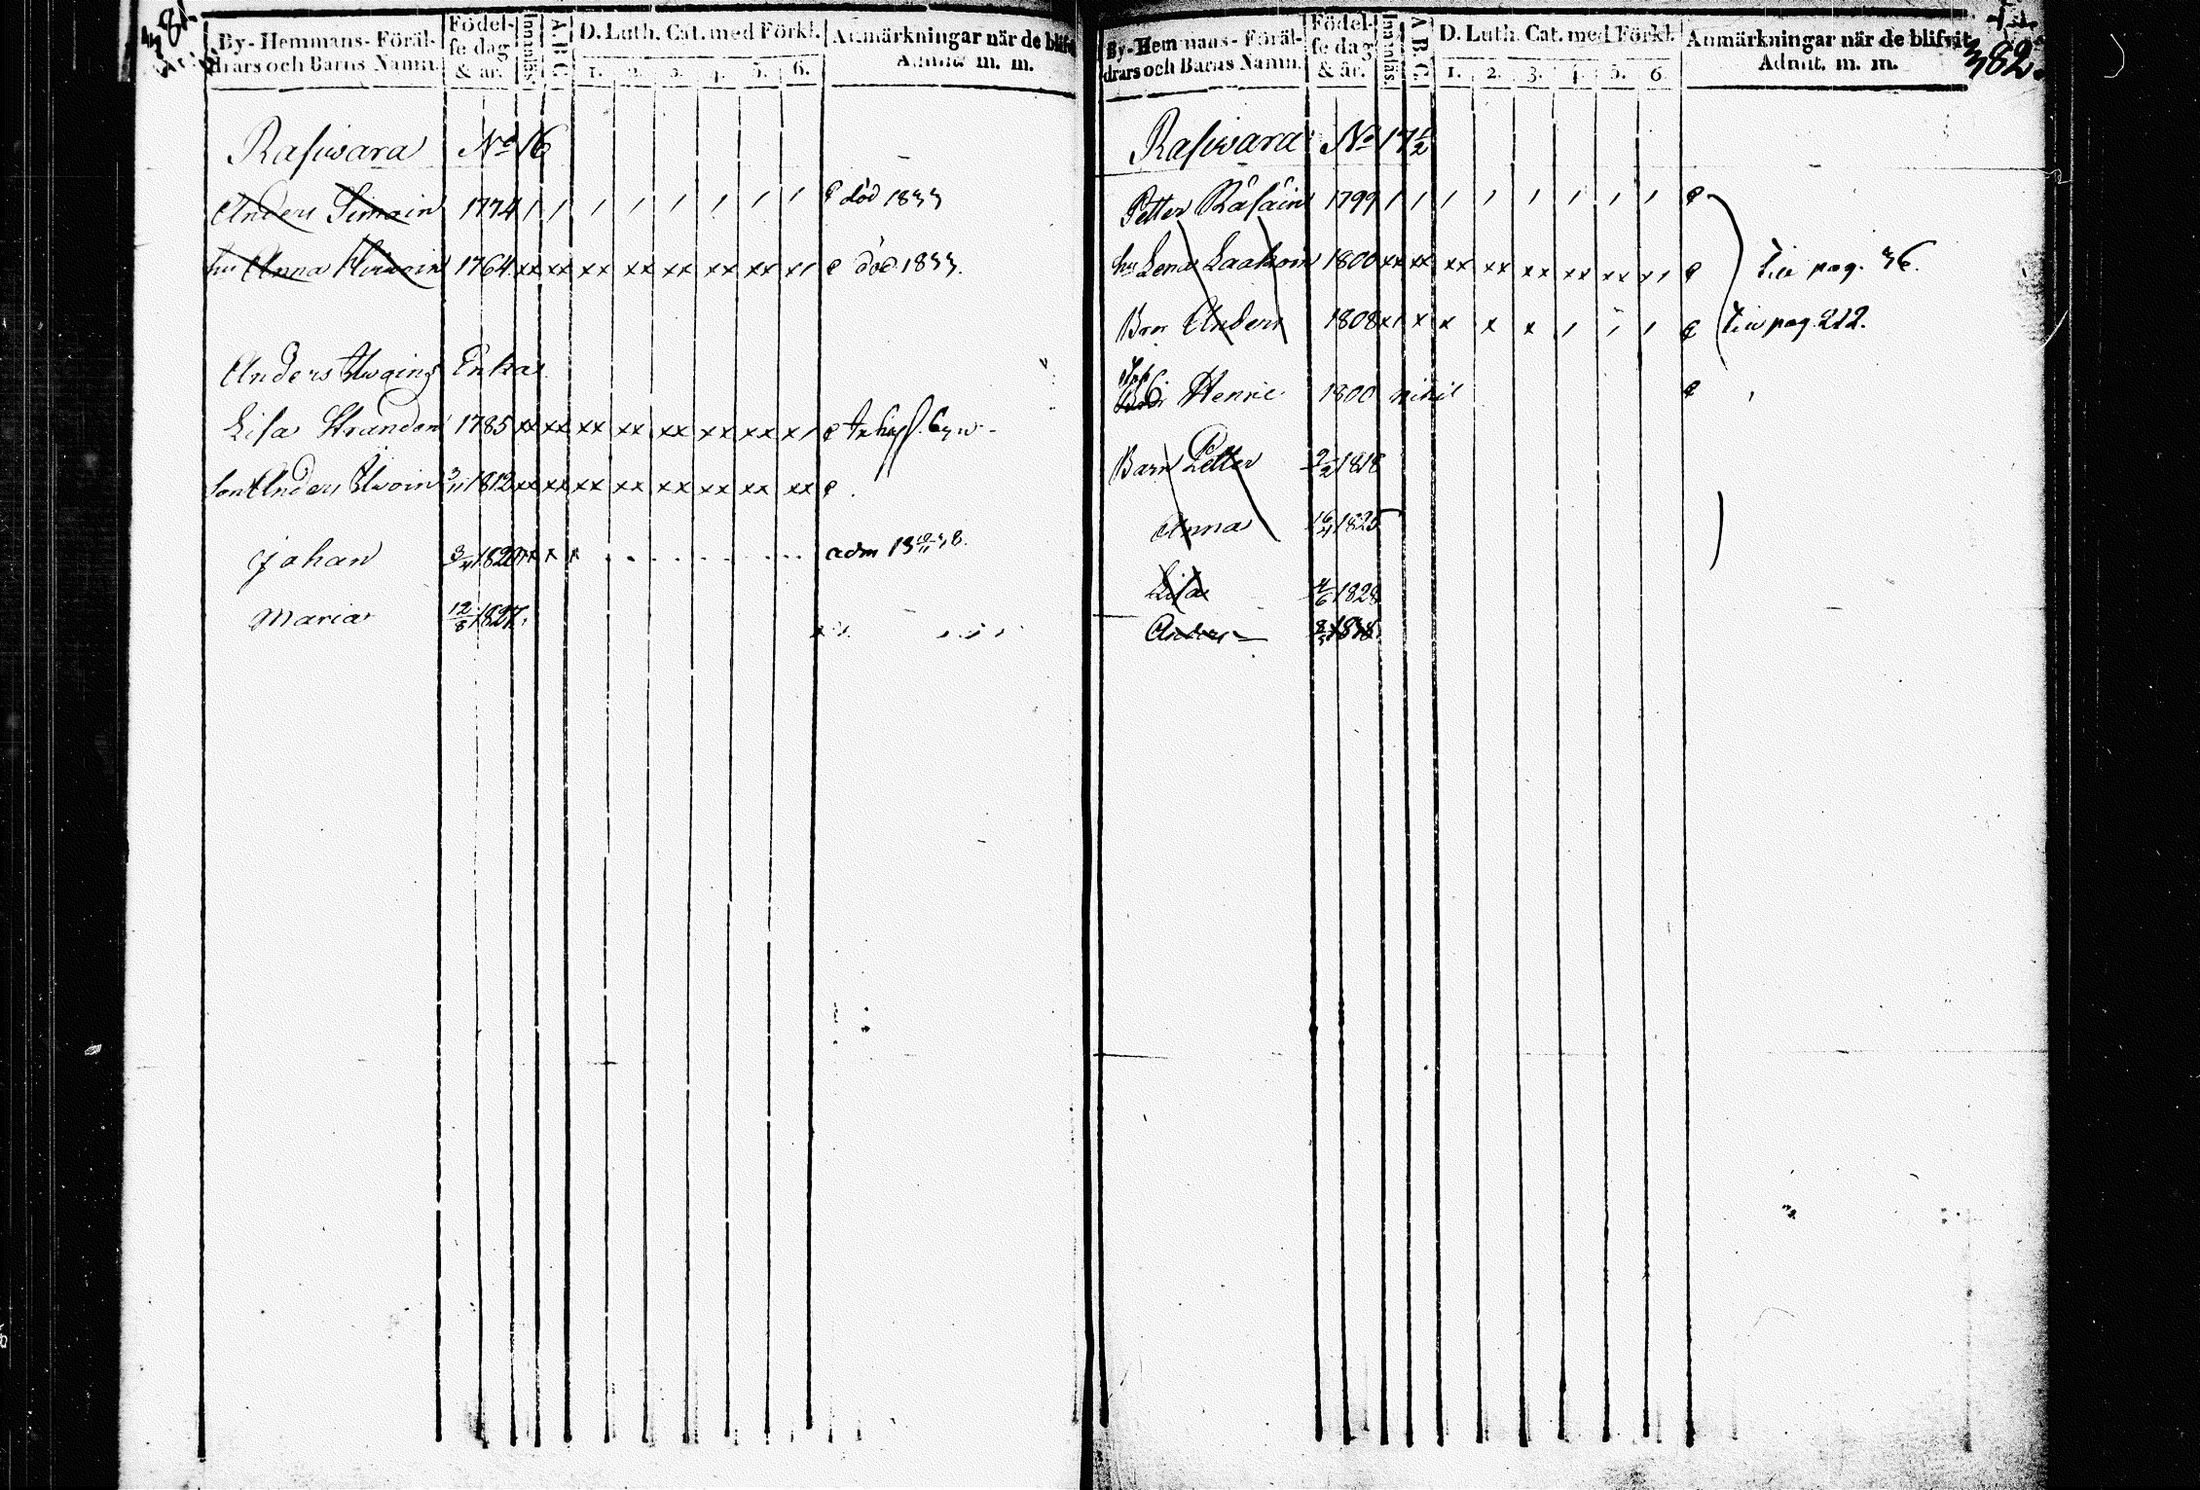 381.
By- Hemmans- Föräl-
drars och Barns Namn.
Födel-
se dag
& år.
Innanläs
A B C
D. Luth. Cat. med Förkl.
1. 2. 3. 4. 5. 6.
Anmärkningar när de blifvit
Admit. m. m.
Rasiwara No 16
Anders 1774 / / / / / / / / död 1833
hu Anna 1764 xx xx xx xx xx xx xx x/ död 1833.
Anders Enka
Lisa Strandan 1785 xx xx xx xx xx xx xx x/
son Anders 3/11 1812 xx xx xx xx xx xx xx xx
Johan 3/4 1820 xx x x adm 18 38.
Maria 12/8 1827.
382.
By- Hemmans- Föräl-
drars och Barns Namn.
Födel-
se dag
& år.
Innanläs
A B C
D. Luth. Cat. med Förkl.
1. 2. 3. 4. 5. 6.
Anmärkningar när de blifvit
Admit. m. m.
Rasiwara No 17 1/2
Petter Räsäin 1799 / / / / / / / /
hu Lena Laakoin 1800 xx xx xx xx xx xx xx x/ Till pag. 36.
Bror Anders 1808 x/ x x x x / / / Till pag. 212.
Henric 1800 nihil
Barn Petter 2/2 1818
Anna 16/4 1825
Lisa 4/6 1828
Anders